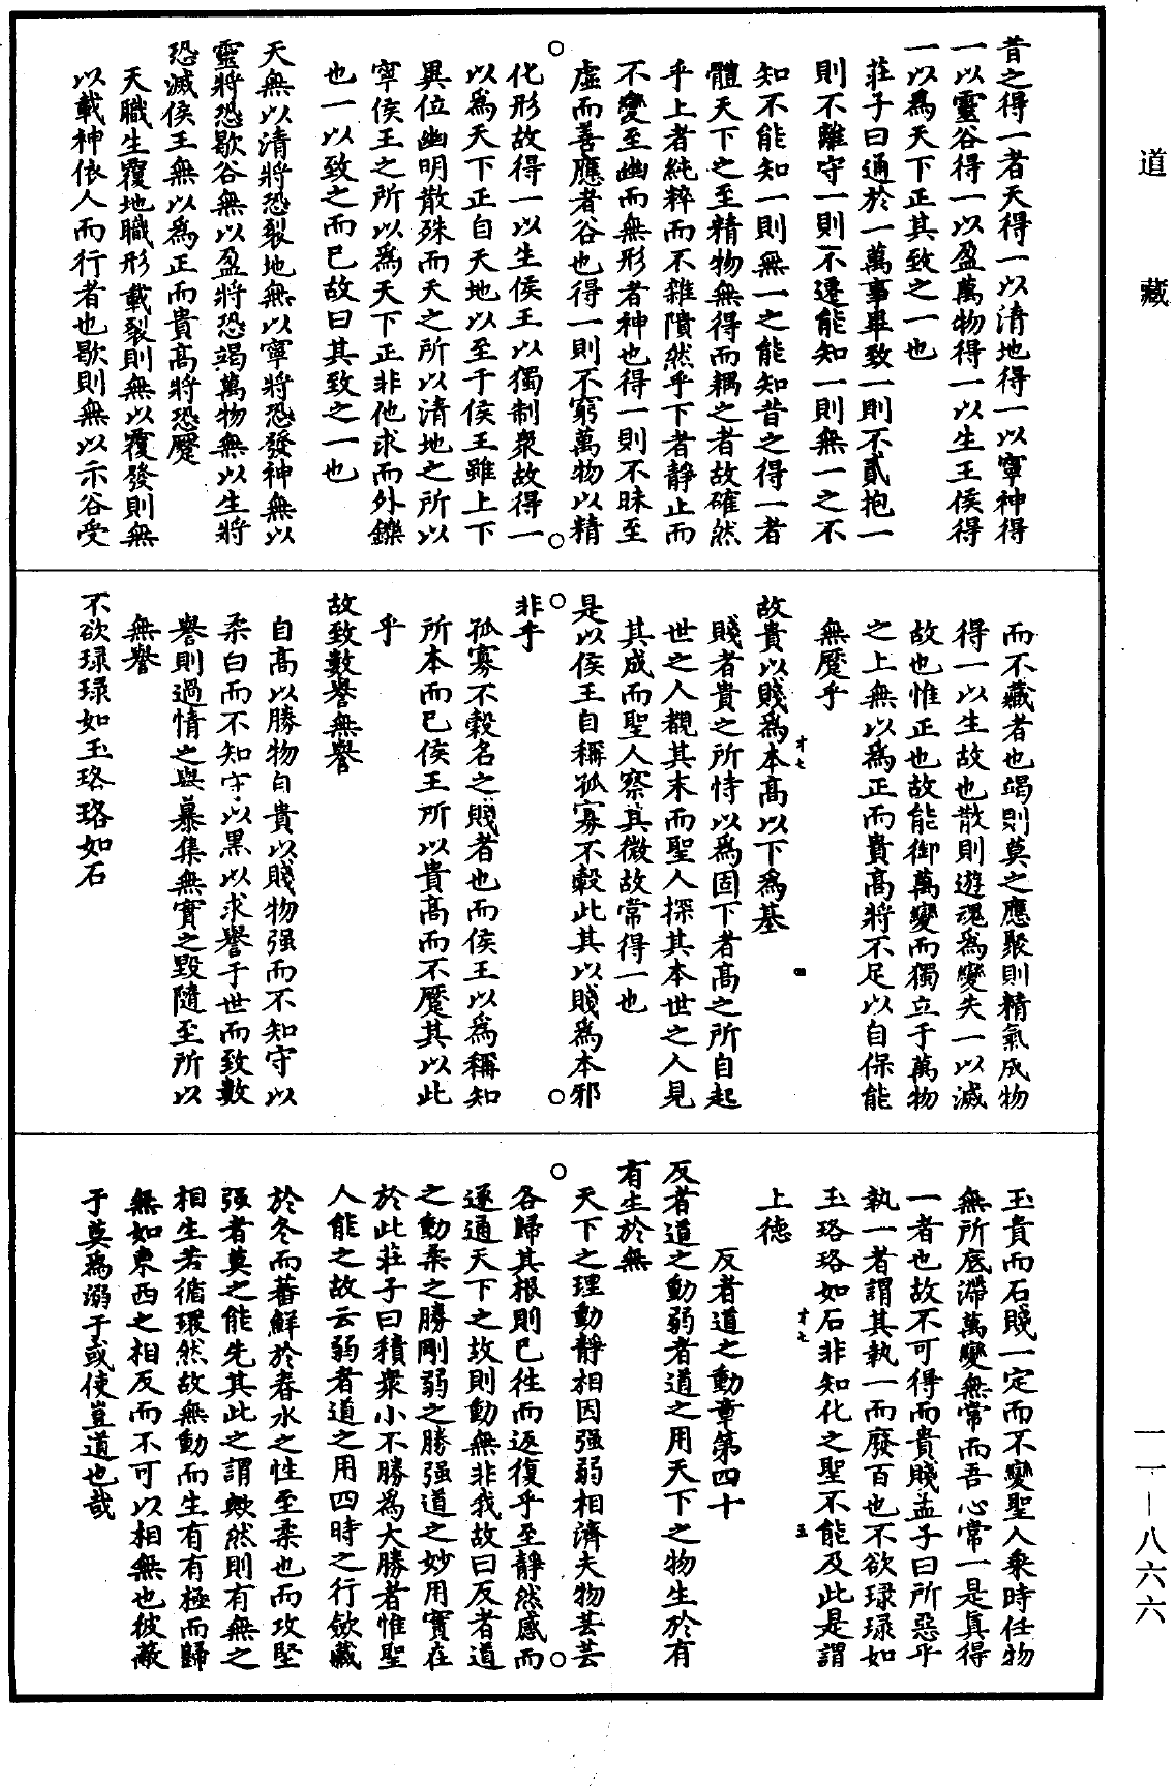 道藏
昔之得一者天得一以清地得一以寧神得
一以靈谷得一以盈萬物得一以生王侯得
一以為天下正其致之一也
莊子曰通於一萬事畢致一則不貳抱一
則不離守一則不遷能知一則無一之不
知不能知一則無一之能知昔之得一者
體天下之至精物無得而耦之者故確然
乎上者純粹而不雜隤然乎下者靜止而
不變至幽而無形者神也得一則不昧至
虛而善應者谷也得一則不窮萬物以精
化形故得一以生侯王以獨制衆故得一
以為天下正自天地以至于侯王雖上下
異位幽明散殊而天之所以清地之所以
寧侯王之所以為天下正非他求而外鑠
也一以致之而已故曰其致之一也
天無以清將恐裂地無以寧將恐發神無以
靈將恐歇谷無以盈將恐竭萬物無以生將
恐滅侯王無以為正而貴高將恐蹷
天職生覆地職形載裂則無以覆發則無
以載神依人而行者也歇則無以示谷受
而不藏者也竭則莫之應聚則精氣成物
得一以生故也散則遊魂為變失一以滅
故也惟正也故能御萬變而獨立于萬物
之上無以為正而貴高將不足以自保能
無蹷乎
故貴以賤為本高以下為基
才七
四
賤者貴之所恃以為固下者高之所自起
世之人覩其末而聖人探其本世之人見
其成而聖人察其微故常得一也
是以侯王自稱孤寡不穀此其以賤為本邪
非乎
孤寡不穀名之賤者也而侯王以為稱知
所本而已侯王所以貴高而不蹷其以此
乎
故致數譽無譽
自高以勝物自貴以賤物强而不知守以
柔白而不知守以黑以求譽于世而致數
譽則過情之與暴集無實之毀隨至所以
無譽
不欲琭琭如玉珞珞如石
玉貴而石賤一定而不變聖人乘時任物
無所底滯萬變無常而吾心常一是真得
一者也故不可得而貴賤孟子曰所惡乎
執一者謂其執一而廢百也不欲琭琭如
玉珞珞如石非知化之聖不能及此是謂
上德
才七
五
反者道之動章第四十
反者道之動弱者道之用天下之物生於有
有生於無
天下之理動靜相因强弱相濟夫物芸芸
各歸其根則已往而返復乎至靜然感而
遂通天下之故則動無非我故曰反者道
之動柔之勝剛弱之勝强道之妙用實在
於此莊子曰積衆小不勝為大勝者惟聖
人能之故云弱者道之用四時之行斂藏
於冬而蕃鮮於春水之性至柔也而攻堅
强者莫之能先其此之謂歟然則有無之
相生若循環然故無動而生有有極而歸
無如東西之相反而不可以相無也彼蔽
于莫為溺于或使豈道也哉
一一—八六六